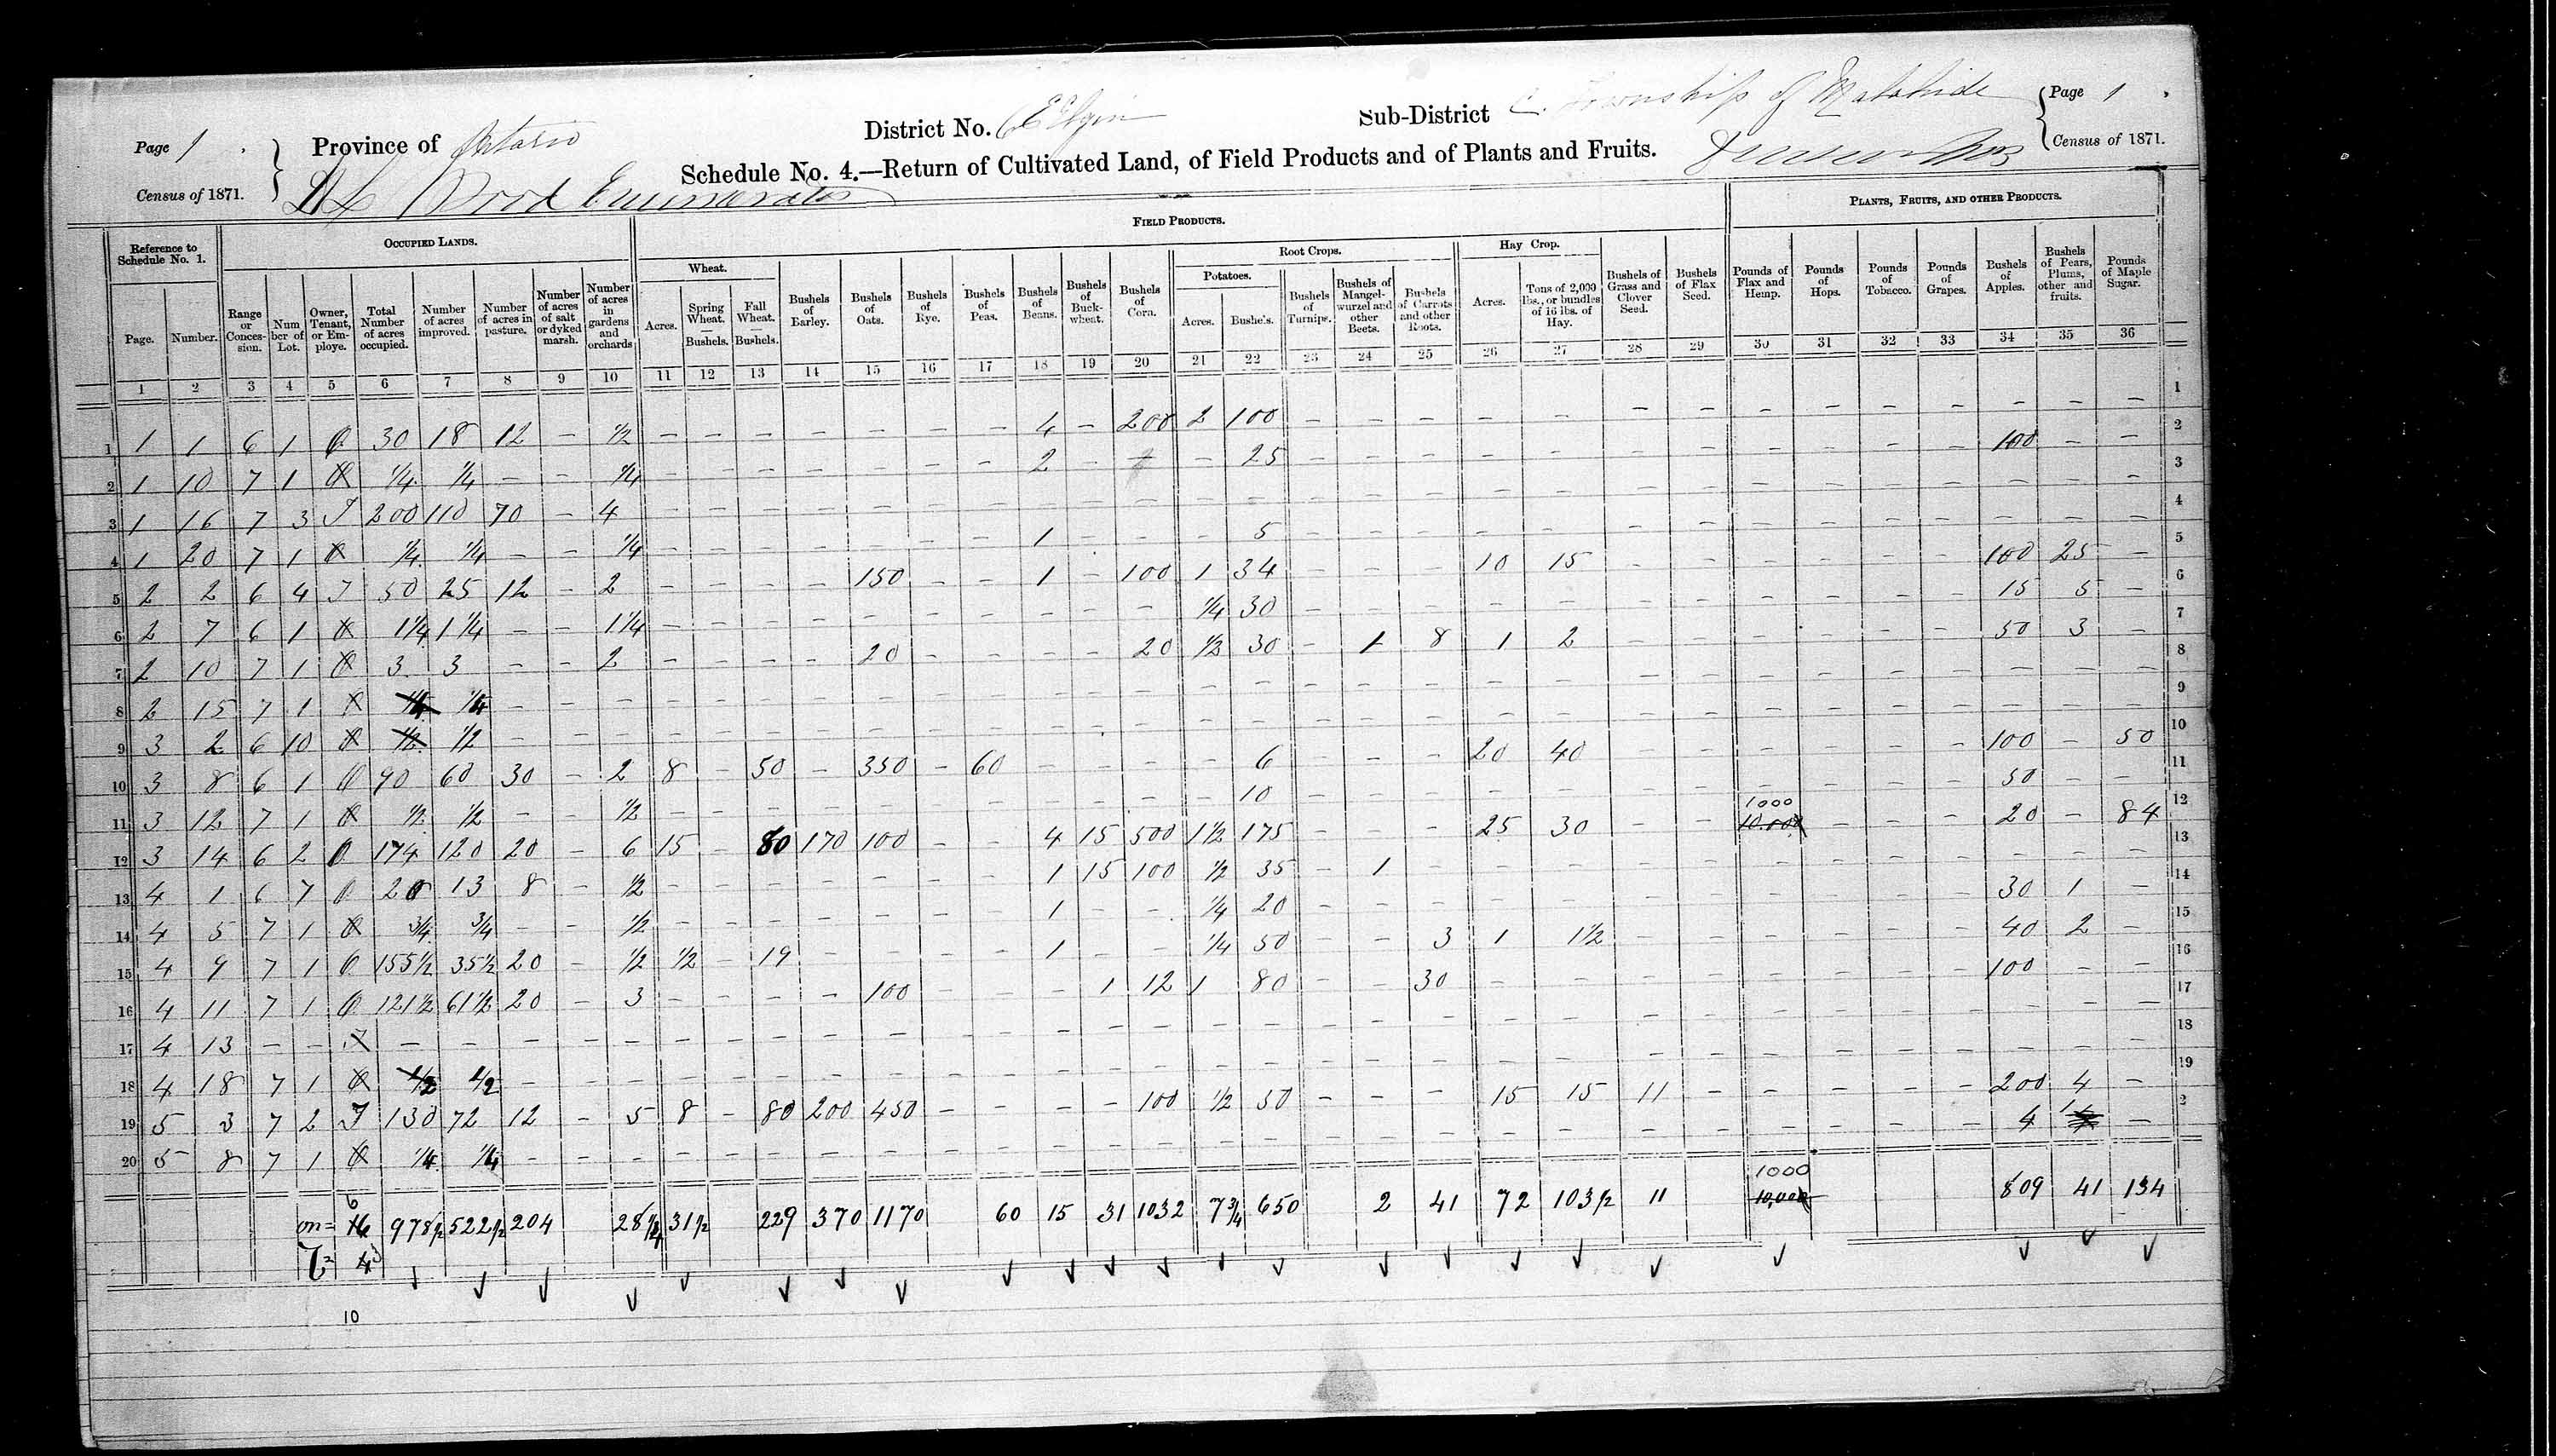 Page 1 . Province of Ontario District No. 6 Elgin Sub-District C. Township of Malahide Page 1
Census of 1871. Wood Enumerator Schedule No. 4.—Return of Cultivated Land, of Field Products and of Plants and Fruits. Census of 1871.
Reference to Schedule No. 1. OCCUPIED LANDS. FIELD PRODUCTS. PLANTS, FRUITS, AND OTHER PRODUCTS.
Wheat. Root Crops. Potatoes. Hay Crop.
Page. Number. Range or Conces- sion. Num ber of Lot. Owner, Tenant, or Em- ploye. Total Number of acres occupied. Number of acres improved. Number of acres in pasture. Number of acres of salt or dyked marsh. Number of acres in gardens and orchards Acres. Spring Wheat. — Bushels. Fall Wheat. — Bushels. Bushels of Barley. Bushels of Oats. Bushels of Rye. Bushels of Peas. Bushels of Beans. Bushels of Buck- wheat. Bushels of Corn. Acres. Bushe's. Bushels of Turnips. Bushels of Mangel- wurzel and other Beets. Bushels of Carrots and other Roots. Acres. Tons of 2,000 lbs., or bundles of 16 lbs. of Hay. Bushels of Grass and Clover Seed. Bushels of Flax Seed. Pounds of Flax and Hemp. Pounds of Hops. Pounds of Tobacco. Pounds of Grapes. Bushels of Apples. Bushels of Pears, Plums, other and fruits. Pounds of Maple Sugar.
1 2 3 4 5 6 7 8 9 10 11 12 13 14 15 16 17 18 19 20 21 22 23 24 25 26 27 28 29 30 31 32 33 34 35 36
1 1 1 6 1 O 30 18 12 – 1/2 – – – – – – – 4 – 200 2 100 – – – – – – – – – – – – – – 1
2 1 10 7 1 O 1/4 1/4 – – 1/4 – – – – – – – 2 – – – 25 – – – – – – – – – – – 100 – – 2
3 1 16 7 3 T 200 110 70 – 4 – – – – – – – – – – – – – – – – – – – – – – – – – – 3
4 1 20 7 1 O 1/4 1/4 – – 1/4 – – – – – – – 1 – – – 5 – – – – – – – – – – – – – – 4
5 2 2 6 4 T 50 25 12 – 2 – – – – 150 – – 1 – 100 1 34 – – – 10 15 – – – – – – 100 25 – 5
6 2 7 6 1 O 1 1/4 1 1/4 – – 1 1/4 – – – – – – – – – – 1/4 30 – – – – – – – – – – – 15 5 – 6
7 2 10 7 1 O 3 3 – – 2 – – – – 20 – – – – 20 1/2 30 – 1 8 1 2 – – – – – – 50 3 – 7
8 2 15 7 1 1/4 1/4 – – – – – – – – – – – – – – – – – – – – – – – – – – – – – 8
9 3 2 6 10 O 1/2 1/2 – – – – – – – – – – – – – – – – – – – – – – – – – – – – – 9
10 3 8 6 1 O 90 60 30 – 2 8 – 50 – 350 – 60 – – – – 6 – – – 20 40 – – – – – – 100 – 50 10
11 3 12 7 1 O 1/2 1/2 – – 1/2 – – – – – – – – – – – 10 – – – – – – – – – – – 50 – – 11
12 3 14 6 2 O 174 120 20 – 6 15 – 80 170 100 – – 4 15 500 1 1/2 175 – – – 25 30 – – 1000 10.000 – – – 20 – 84 12
13 4 1 6 7 O 20 13 8 – 1/2 – – – – – – – 1 15 100 1/2 35 – 1 – – – – – – – – – – – – 13
14 4 5 7 1 O 3/4 3/4 – – 1/2 – – – – – – – 1 – – 1/4 20 – – – – – – – – – – – 30 1 – 14
15 4 9 7 1 O 155 1/2 35 1/2 20 – 1/2 1/2 – 19 – – – – 1 – – 1/4 50 – – 3 1 1 1/2 – – – – – – 40 2 – 15
16 4 11 7 1 O 121 1/2 61 1/2 20 – 3 – – – – 100 – – – 1 12 1 80 – – 30 – – – – – – – – 100 – – 16
17 4 13 – – – – – – – – – – – – – – – – – – – – – – – – – – – – – – – – – 17
18 4 18 7 1 O 1/2 1/2 – – – – – – – – – – – – – – – – – – – – – – – – – – – – – 18
19 5 3 7 2 T 130 72 12 – 5 8 – 80 200 450 – – – – 100 1/2 50 – – – 15 15 11 – – – – – 200 4 – 19
20 5 8 7 1 O 1/4 1/4 – – – – – – – – – – – – – – – – – – – – – – – – – – – 4 – 2
on= 6 16 978 1/2 522 1/2 204 28 1/4 31 1/2 229 370 1170 60 15 31 1032 7 3/4 650 2 41 72 103 1/2 11 1000 10,000 809 41 134
T= 4
10